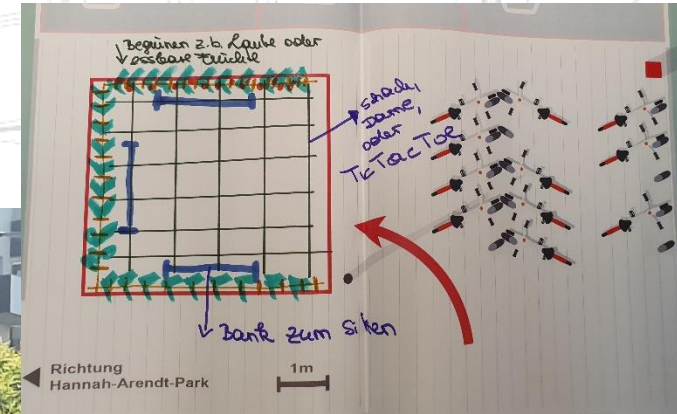 Begrünen z.b. Laube oder
essbare Früchte
Schach,
Dame,
oder
TicTacToe
Bank zum Sitzen
Richtung
Hannah-Arendt-Park
1m